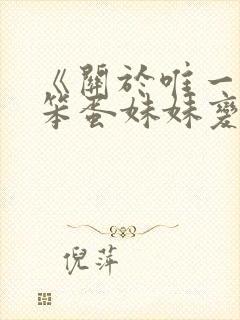 《關於唯一
笨蛋妹妹變
倪萍